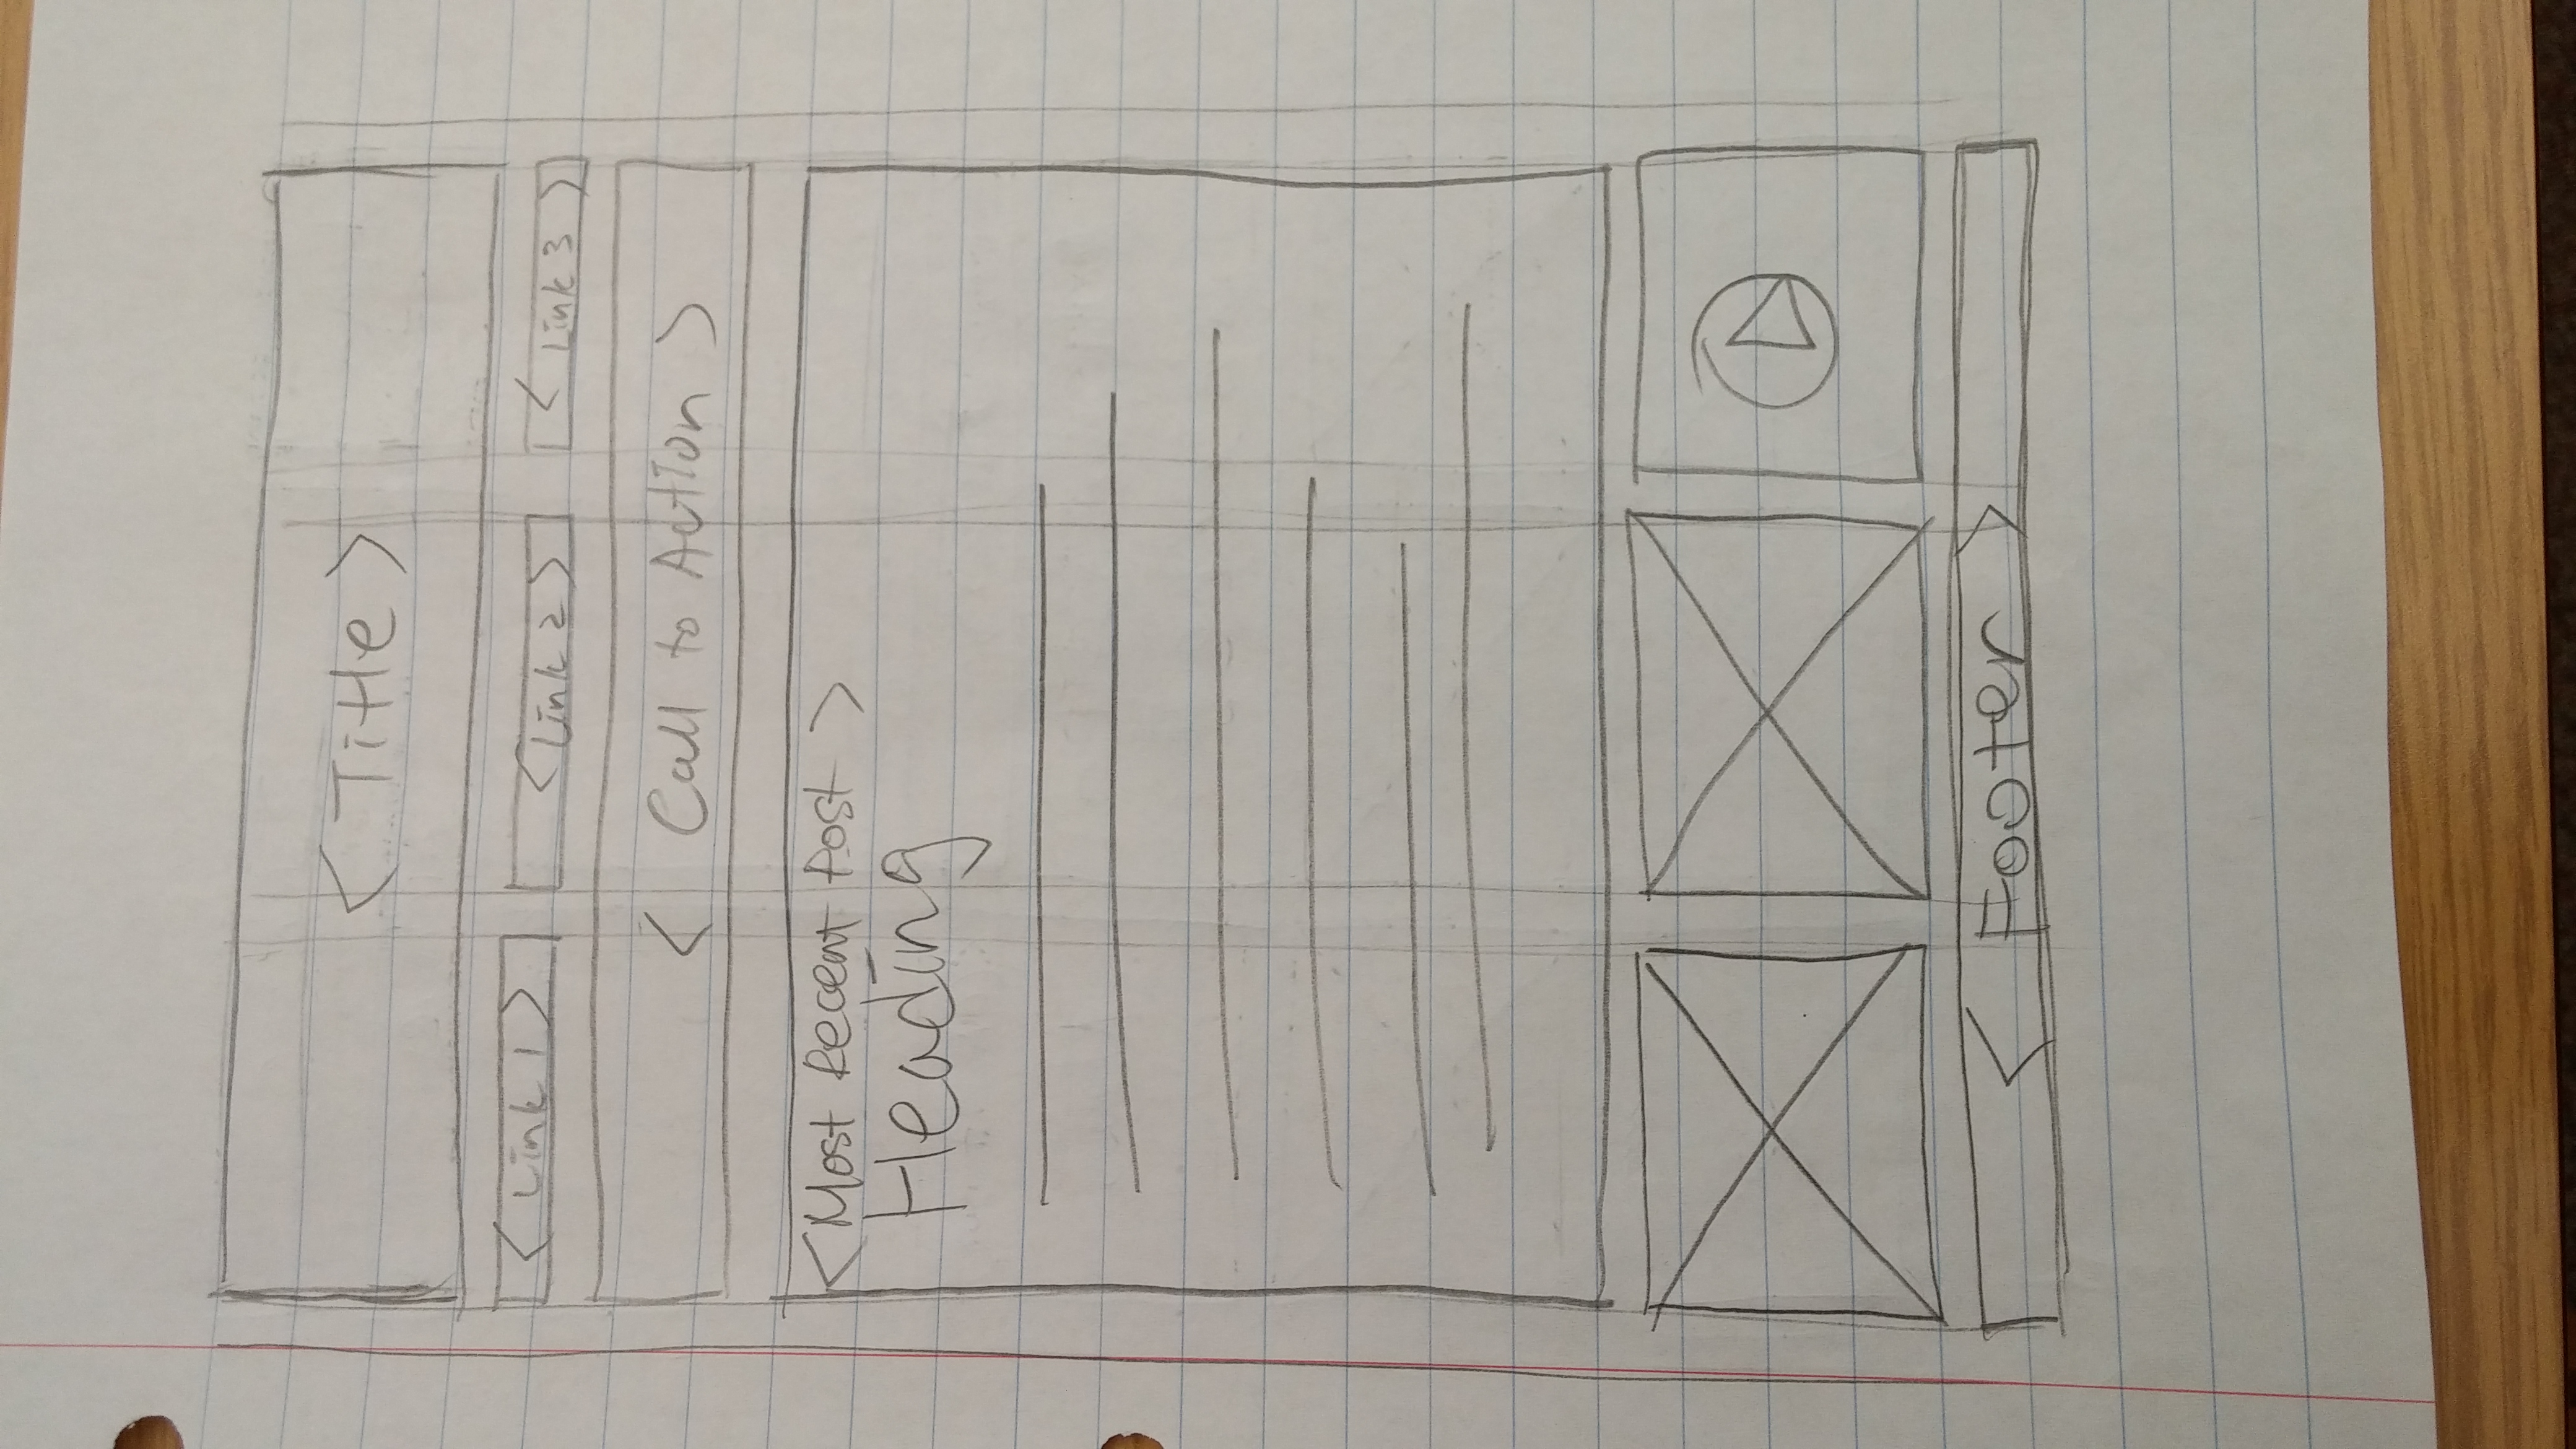 < Title >
< Link 1 > < Link 2 > < Link 3 >
< Call to Action >
<Most Recent Post >
Heading
< Footer >